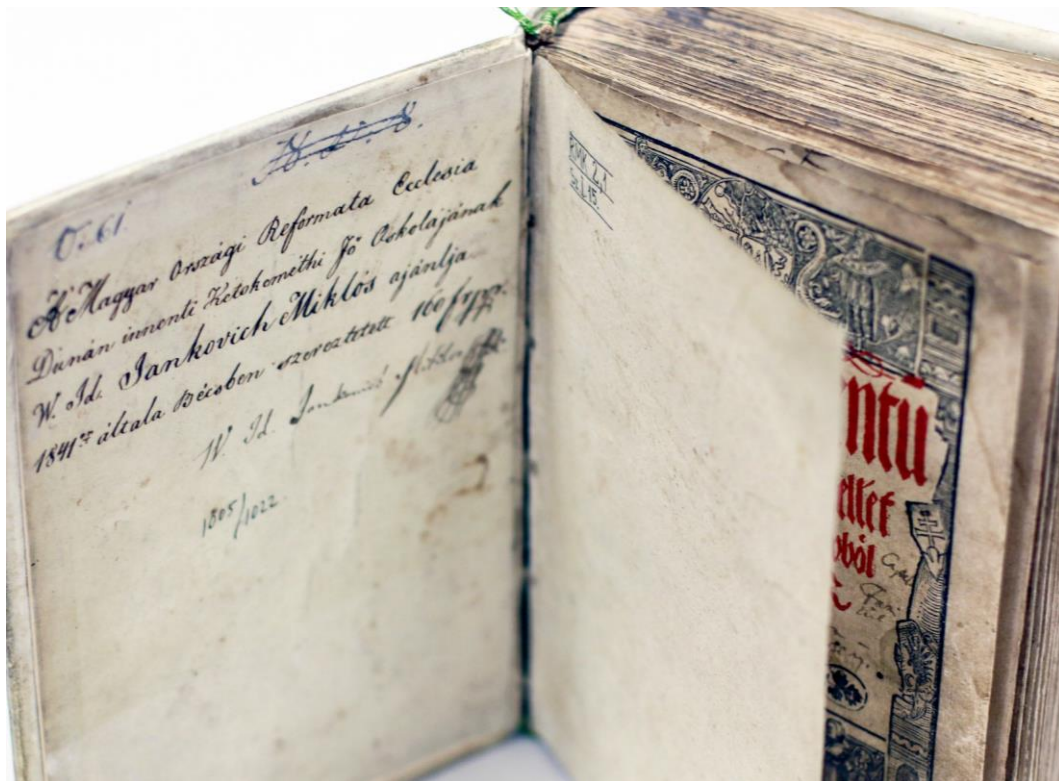 O. 61.
A' Magyar Országi Reformata Ecclesia
Dunán innenti Ketskeméthi Fő Oskolájának
W. Id. Jankovich Miklós ajánlja
1841 általa Bécsben szereztetett 160
W. Id. Miklós
1805/1022
RMK. I. 1.
ntū
ellet
ból